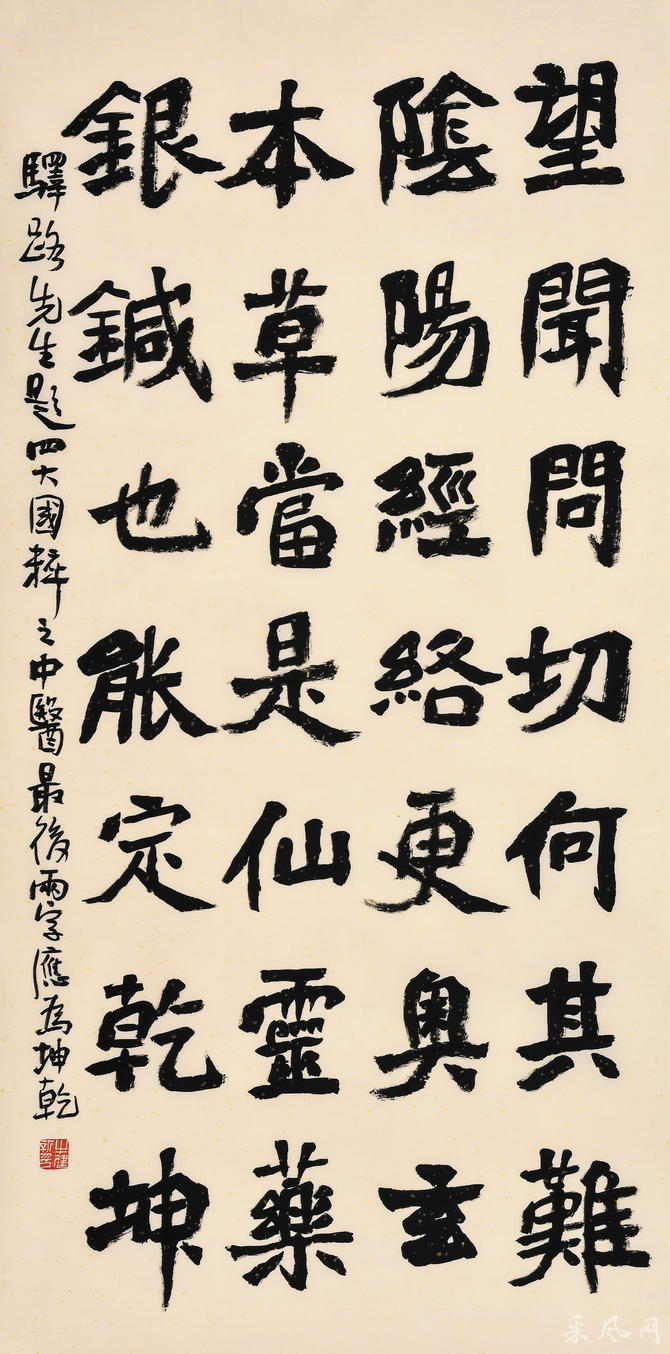 望聞問切何其難
陰陽經絡更奧玄
本草當是仙靈藥
銀鍼也能定乾坤
驛路先生題四大國粹之中醫最後兩字應為坤乾
采风网